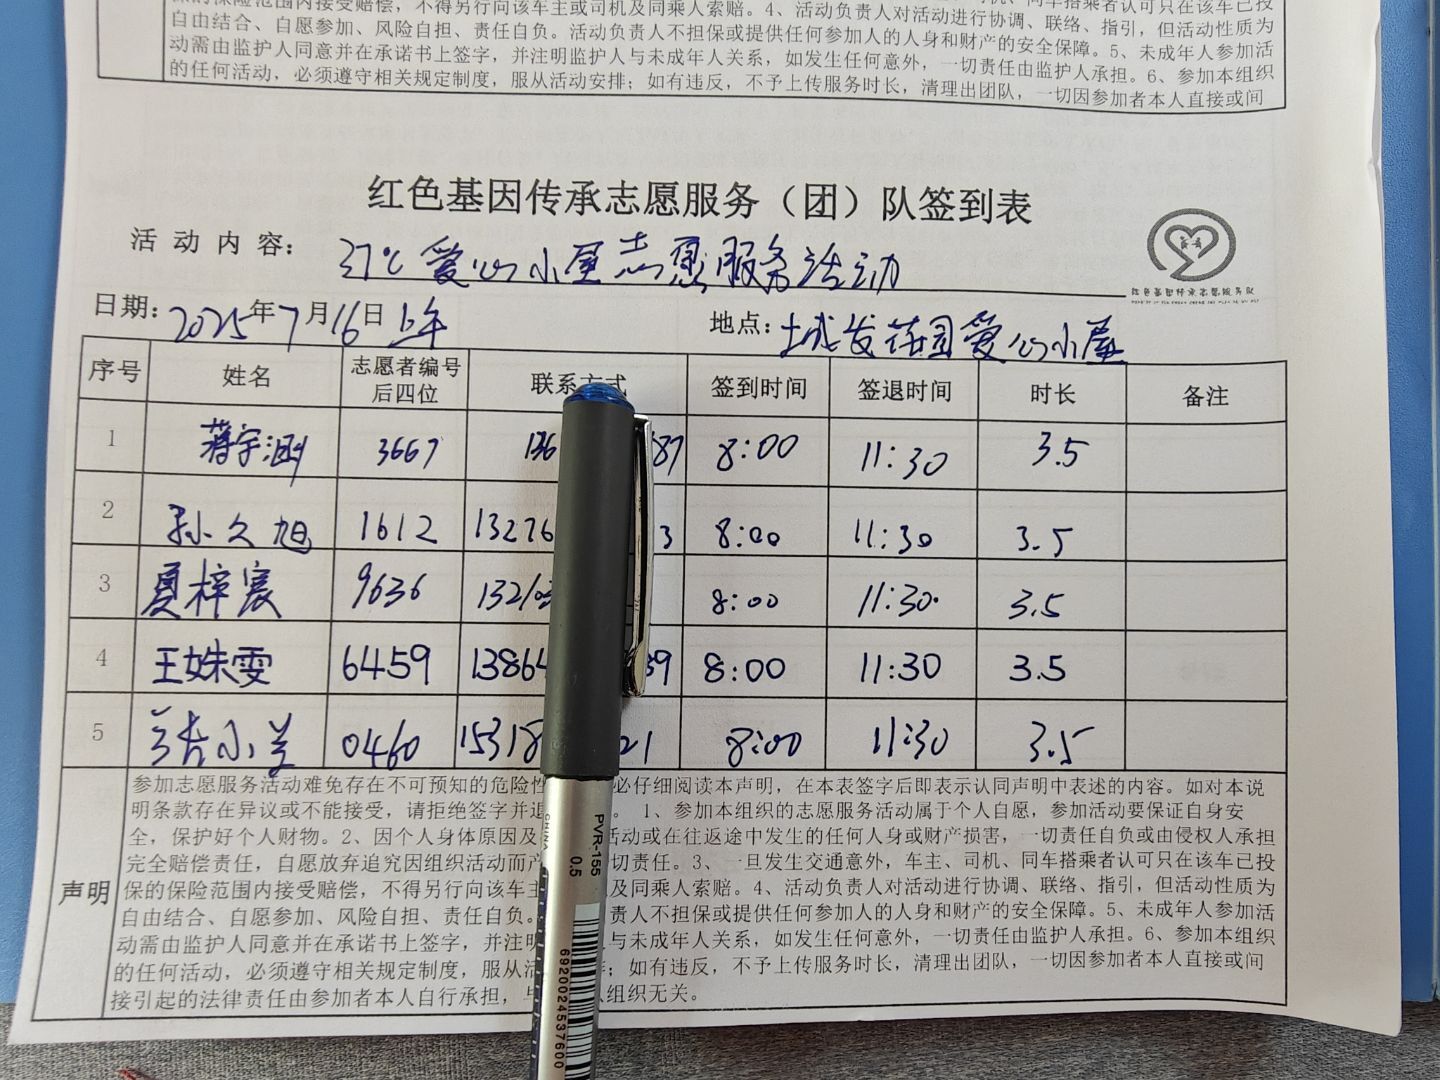 保的保险范围内接受赔偿，不得另行向该车主或司机及同乘人索赔。4、活动负责人对活动进行协调、联络、指引，但活动性质为
自由结合、自愿参加、风险自担、责任自负。活动负责人不担保或提供任何参加人的人身和财产的安全保障。5、未成年人参加活
动需由监护人同意并在承诺书上签字，并注明监护人与未成年人关系，如发生任何意外，一切责任由监护人承担。6、参加本组织
的任何活动，必须遵守相关规定制度，服从活动安排；如有违反，不予上传服务时长，清理出团队，一切因参加者本人直接或间
红色基因传承志愿服务（团）队签到表
活动内容：37℃爱心小屋志愿服务活动
红色基因传承志愿服务队
日期：2025年7月16日上午 地点：城发花园爱心小屋
序号 姓名 志愿者编号后四位 联系方式 签到时间 签退时间 时长 备注
1 蒋宇 3667 136 87 8:00 11:30 3.5
2 孙久旭 1612 13276 3 8:00 11:30 3.5
3 夏梓宸 9636 13203 8:00 11:30 3.5
4 王姝雯 6459 13864 39 8:00 11:30 3.5
5 小兰 0460 15318 21 8:00 11:30 3.5
声明
参加志愿服务活动难免存在不可预知的危险性 必仔细阅读本声明，在本表签字后即表示认同声明中表述的内容。如对本说
明条款存在异议或不能接受，请拒绝签字并退 。 1、参加本组织的志愿服务活动属于个人自愿，参加活动要保证自身安
全，保护好个人财物。2、因个人身体原因及 活动或在往返途中发生的任何人身或财产损害，一切责任自负或由侵权人承担
完全赔偿责任，自愿放弃追究因组织活动而产 切责任。3、一旦发生交通意外，车主、司机、同车搭乘者认可只在该车已投
保的保险范围内接受赔偿，不得另行向该车主 及同乘人索赔。4、活动负责人对活动进行协调、联络、指引，但活动性质为
自由结合、自愿参加、风险自担、责任自负。 责人不担保或提供任何参加人的人身和财产的安全保障。5、未成年人参加活
动需由监护人同意并在承诺书上签字，并注明 与未成年人关系，如发生任何意外，一切责任由监护人承担。6、参加本组织
的任何活动，必须遵守相关规定制度，服从活 ；如有违反，不予上传服务时长，清理出团队，一切因参加者本人直接或间
接引起的法律责任由参加者本人自行承担，与 组织无关。
PVR-155 0.5
CHINA
6920024537600